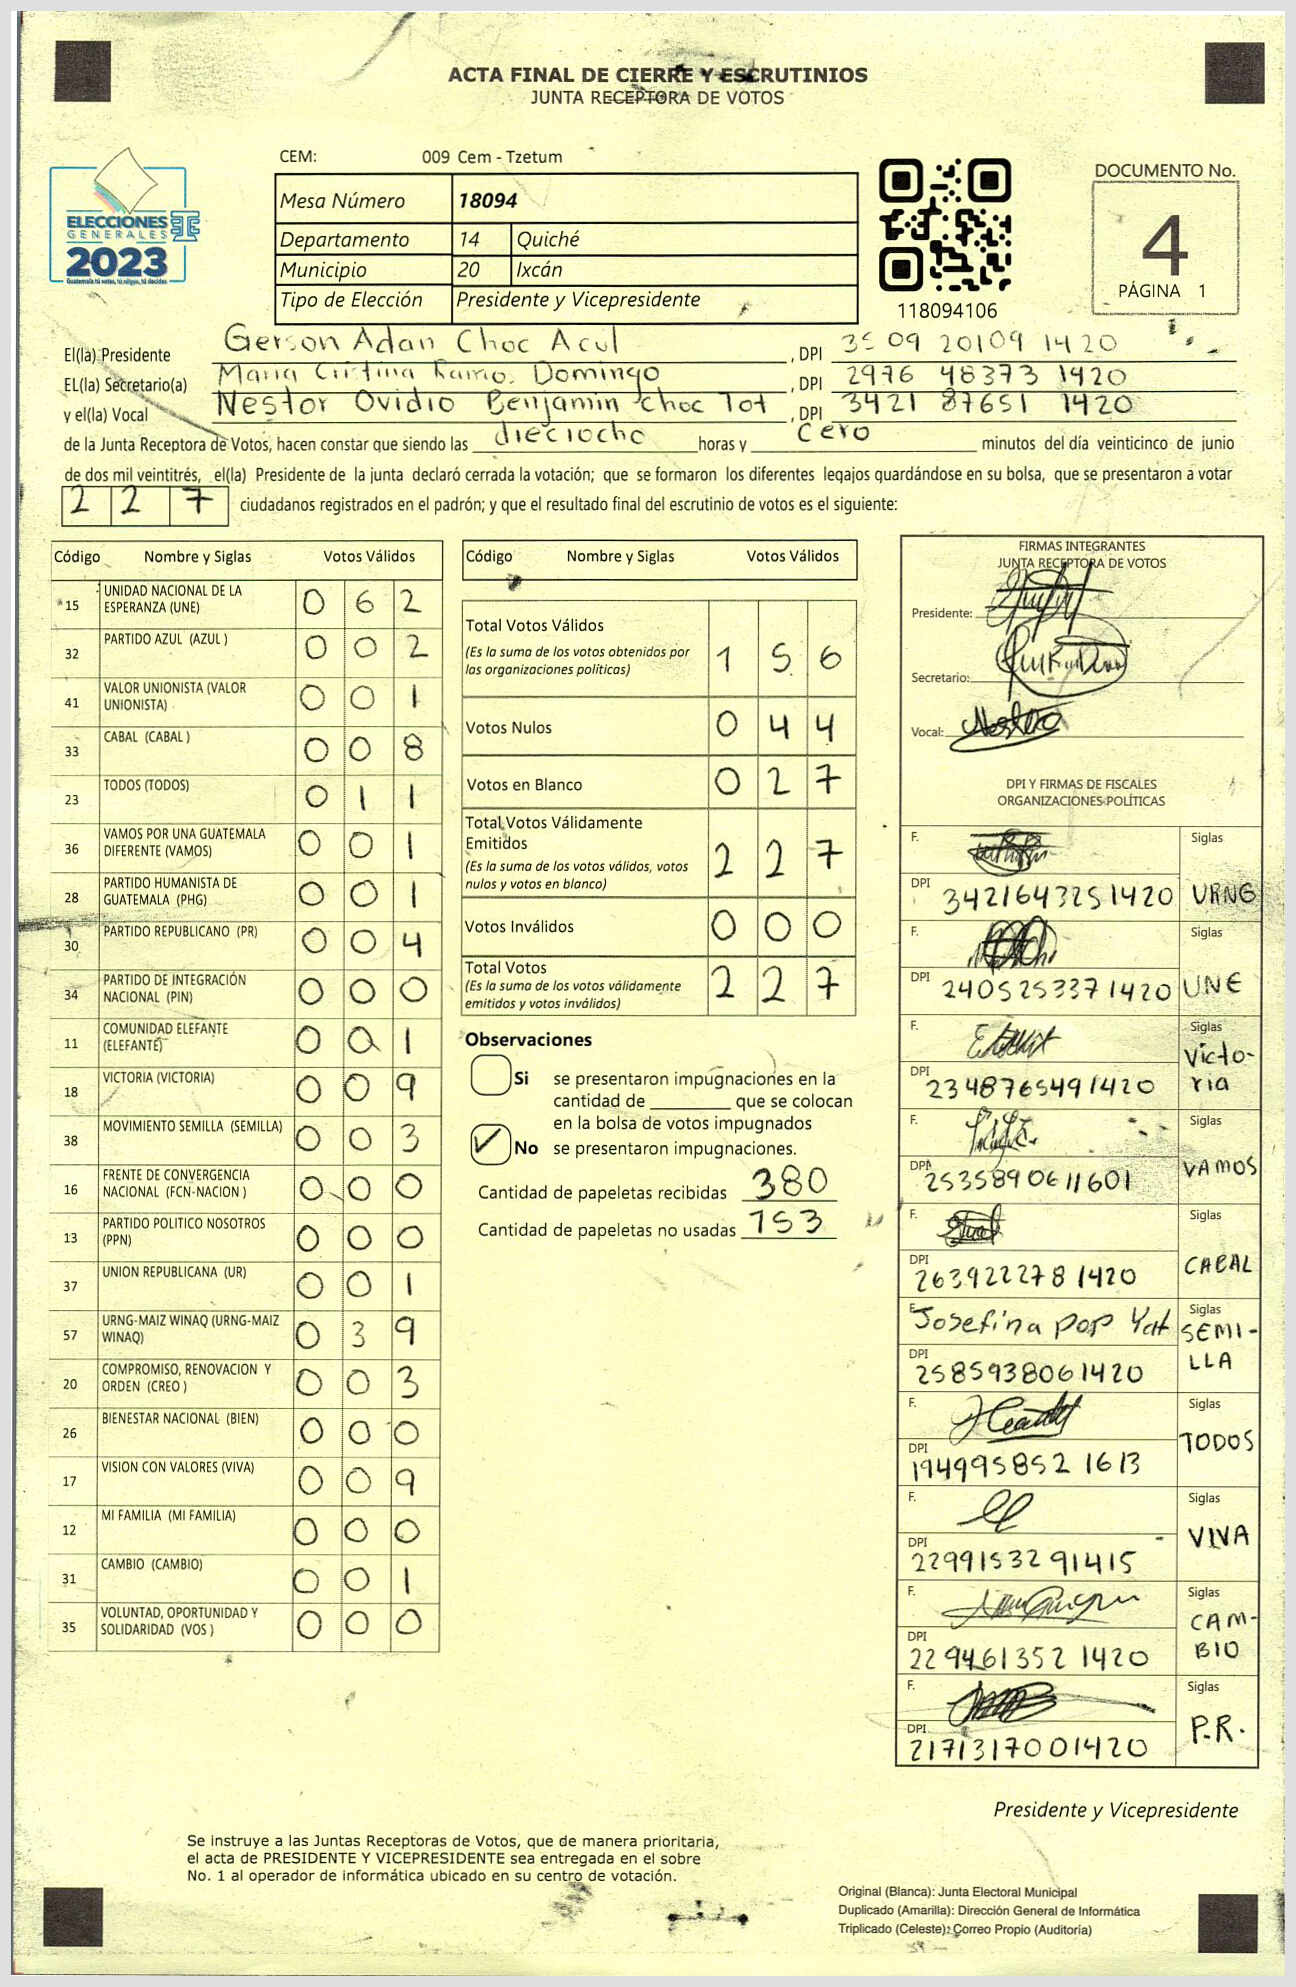 ACTA FINAL DE CIERRE Y ESCRUTINIOS
JUNTA RECEPTORA DE VOTOS
CEM: 009 Cem - Tzetum
ELECCIONES
GENERALES
2023
Guatemala tú votas, tú eliges, tú decides
Mesa Número 18094
Departamento 14 Quiché
Municipio 20 Ixcán
Tipo de Elección Presidente y Vicepresidente
118094106
DOCUMENTO No.
4
PÁGINA 1
El(la) Presidente Gerson Adan Choc Acul, DPI 35 09 20109 1420
EL(la) Secretario(a) Maria Cristina Ramo. Domingo, DPI 2976 48373 1420
y el(la) Vocal Nestor Ovidio Benjamin choc Tot, DPI 3421 87651 1420
de la Junta Receptora de Votos, hacen constar que siendo las dieciocho horas y cero minutos del día veinticinco de junio
de dos mil veintitrés, el(la) Presidente de la junta declaró cerrada la votación; que se formaron los diferentes legajos guardándose en su bolsa, que se presentaron a votar
227 ciudadanos registrados en el padrón; y que el resultado final del escrutinio de votos es el siguiente:
Código Nombre y Siglas Votos Válidos
15 UNIDAD NACIONAL DE LA ESPERANZA (UNE) 0 6 2
32 PARTIDO AZUL (AZUL ) 0 0 2
41 VALOR UNIONISTA (VALOR UNIONISTA) 0 0 1
33 CABAL (CABAL ) 0 0 8
23 TODOS (TODOS) 0 1 1
36 VAMOS POR UNA GUATEMALA DIFERENTE (VAMOS) 0 0 1
28 PARTIDO HUMANISTA DE GUATEMALA (PHG) 0 0 1
30 PARTIDO REPUBLICANO (PR) 0 0 4
34 PARTIDO DE INTEGRACIÓN NACIONAL (PIN) 0 0 0
11 COMUNIDAD ELEFANTE (ELEFANTE) 0 0 1
18 VICTORIA (VICTORIA) 0 0 9
38 MOVIMIENTO SEMILLA (SEMILLA) 0 0 3
16 FRENTE DE CONVERGENCIA NACIONAL (FCN-NACION ) 0 0 0
13 PARTIDO POLITICO NOSOTROS (PPN) 0 0 0
37 UNION REPUBLICANA (UR) 0 0 1
57 URNG-MAIZ WINAQ (URNG-MAIZ WINAQ) 0 3 9
20 COMPROMISO, RENOVACION Y ORDEN (CREO ) 0 0 3
26 BIENESTAR NACIONAL (BIEN) 0 0 0
17 VISION CON VALORES (VIVA) 0 0 9
12 MI FAMILIA (MI FAMILIA) 0 0 0
31 CAMBIO (CAMBIO) 0 0 1
35 VOLUNTAD, OPORTUNIDAD Y SOLIDARIDAD (VOS ) 0 0 0
Código Nombre y Siglas Votos Válidos
Total Votos Válidos 1 5 6
(Es la suma de los votos obtenidos por
las organizaciones políticas)
Votos Nulos 0 4 4
Votos en Blanco 0 2 7
Total Votos Válidamente
Emitidos 2 2 7
(Es la suma de los votos válidos, votos
nulos y votos en blanco)
Votos Inválidos 0 0 0
Total Votos 2 2 7
(Es la suma de los votos válidamente
emitidos y votos inválidos)
Observaciones
Si se presentaron impugnaciones en la
cantidad de ________ que se colocan
en la bolsa de votos impugnados
No se presentaron impugnaciones.
Cantidad de papeletas recibidas 380
Cantidad de papeletas no usadas 153
FIRMAS INTEGRANTES
JUNTA RECEPTORA DE VOTOS
Presidente:
Secretario:
Vocal:
DPI Y FIRMAS DE FISCALES
ORGANIZACIONES POLÍTICAS
F. Siglas
DPI 3421643251420 URNG
F. Siglas
DPI 2405253371420 UNE
F. Siglas
DPI 2348765491420 Victo-
ria
F. Siglas
DPI 2535890611601 VAMOS
F. Siglas
DPI 2639222781420 CABAL
F. Josefina pop Yat Siglas
DPI 2585938061420 SEMI-
LLA
F. Siglas
DPI 1949958521613 TODOS
F. Siglas
DPI 2299153291415 VIVA
F. Siglas
DPI 2294613521420 CAM-
BIO
F. Siglas
DPI 2171317001420 P.R.
Presidente y Vicepresidente
Se instruye a las Juntas Receptoras de Votos, que de manera prioritaria,
el acta de PRESIDENTE Y VICEPRESIDENTE sea entregada en el sobre
No. 1 al operador de informática ubicado en su centro de votación.
Original (Blanca): Junta Electoral Municipal
Duplicado (Amarilla): Dirección General de Informática
Triplicado (Celeste): Correo Propio (Auditoría)